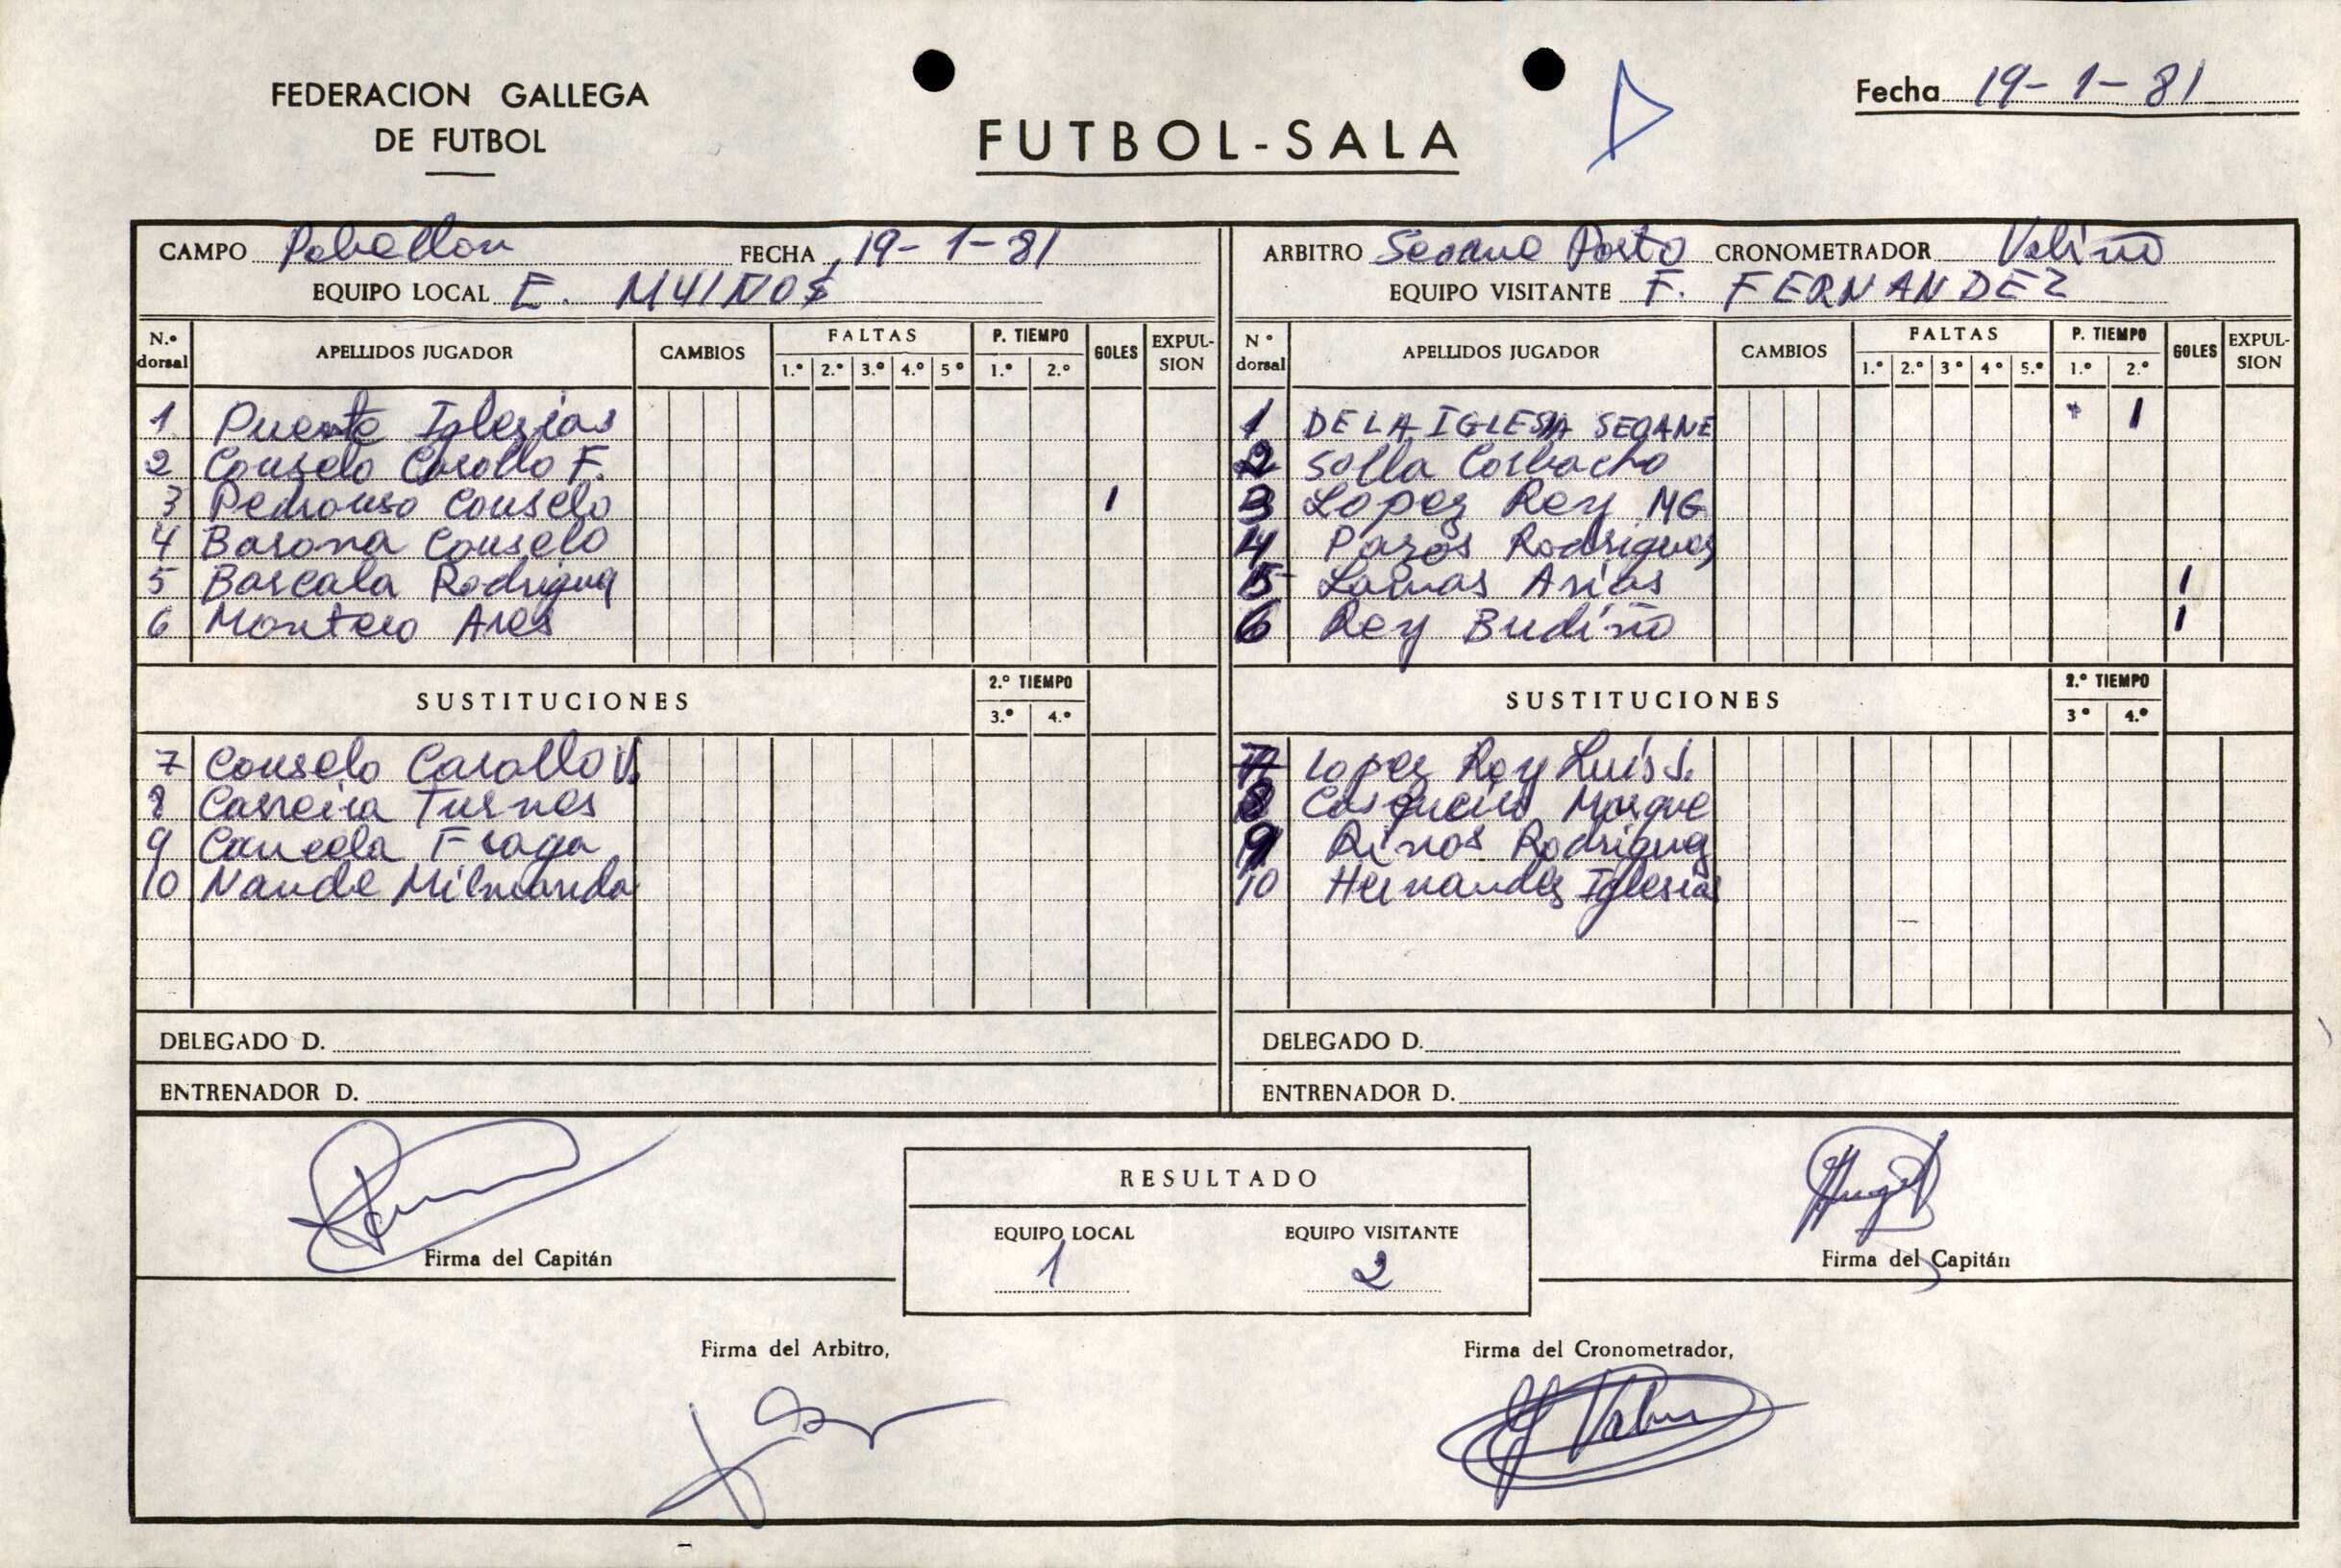 FEDERACION GALLEGA
DE FUTBOL
FUTBOL-SALA
Fecha 19-1-81
CAMPO Pabellon FECHA 19-1-81
EQUIPO LOCAL E. MUIÑOS
ARBITRO Seoane Porto CRONOMETRADOR Valiño
EQUIPO VISITANTE F. FERNANDEZ
N.º dorsal APELLIDOS JUGADOR CAMBIOS FALTAS 1.º 2.º 3.º 4.º 5º P. TIEMPO 1.º 2.º GOLES EXPUL-SION
1 Puente Iglesias
2 Couselo Carollo F.
3 Pedrouso Couselo 1
4 Barona Couselo
5 Bascala Rodrigue
6 Montero Ares
SUSTITUCIONES 2.º TIEMPO 3.º 4.º
7 Couselo Carollo
8 Carreira Turnes
9 Cancela Fraga
10 Nande Milmanda
DELEGADO D.
ENTRENADOR D.
N º dorsal APELLIDOS JUGADOR CAMBIOS FALTAS 1.º 2.º 3º 4º 5.º P. TIEMPO 1.º 2.º GOLES EXPUL-SION
1 DE LA IGLESIA SEOANE 1
2 Solla Corbacho
3 Lopez Rey MG
4 Pazos Rodriguez
5 Lamas Arias 1
6 Rey Budiño 1
SUSTITUCIONES 2.º TIEMPO 3º 4.º
7 Lopez Rey Luis J.
8 Casqueiro Marque
9 Rinos Rodriguez
10 Hernandez Iglesias
DELEGADO D.
ENTRENADOR D.
Firma del Capitán
RESULTADO
EQUIPO LOCAL EQUIPO VISITANTE
1 2
Firma del Capitán
Firma del Arbitro,
Firma del Cronometrador,